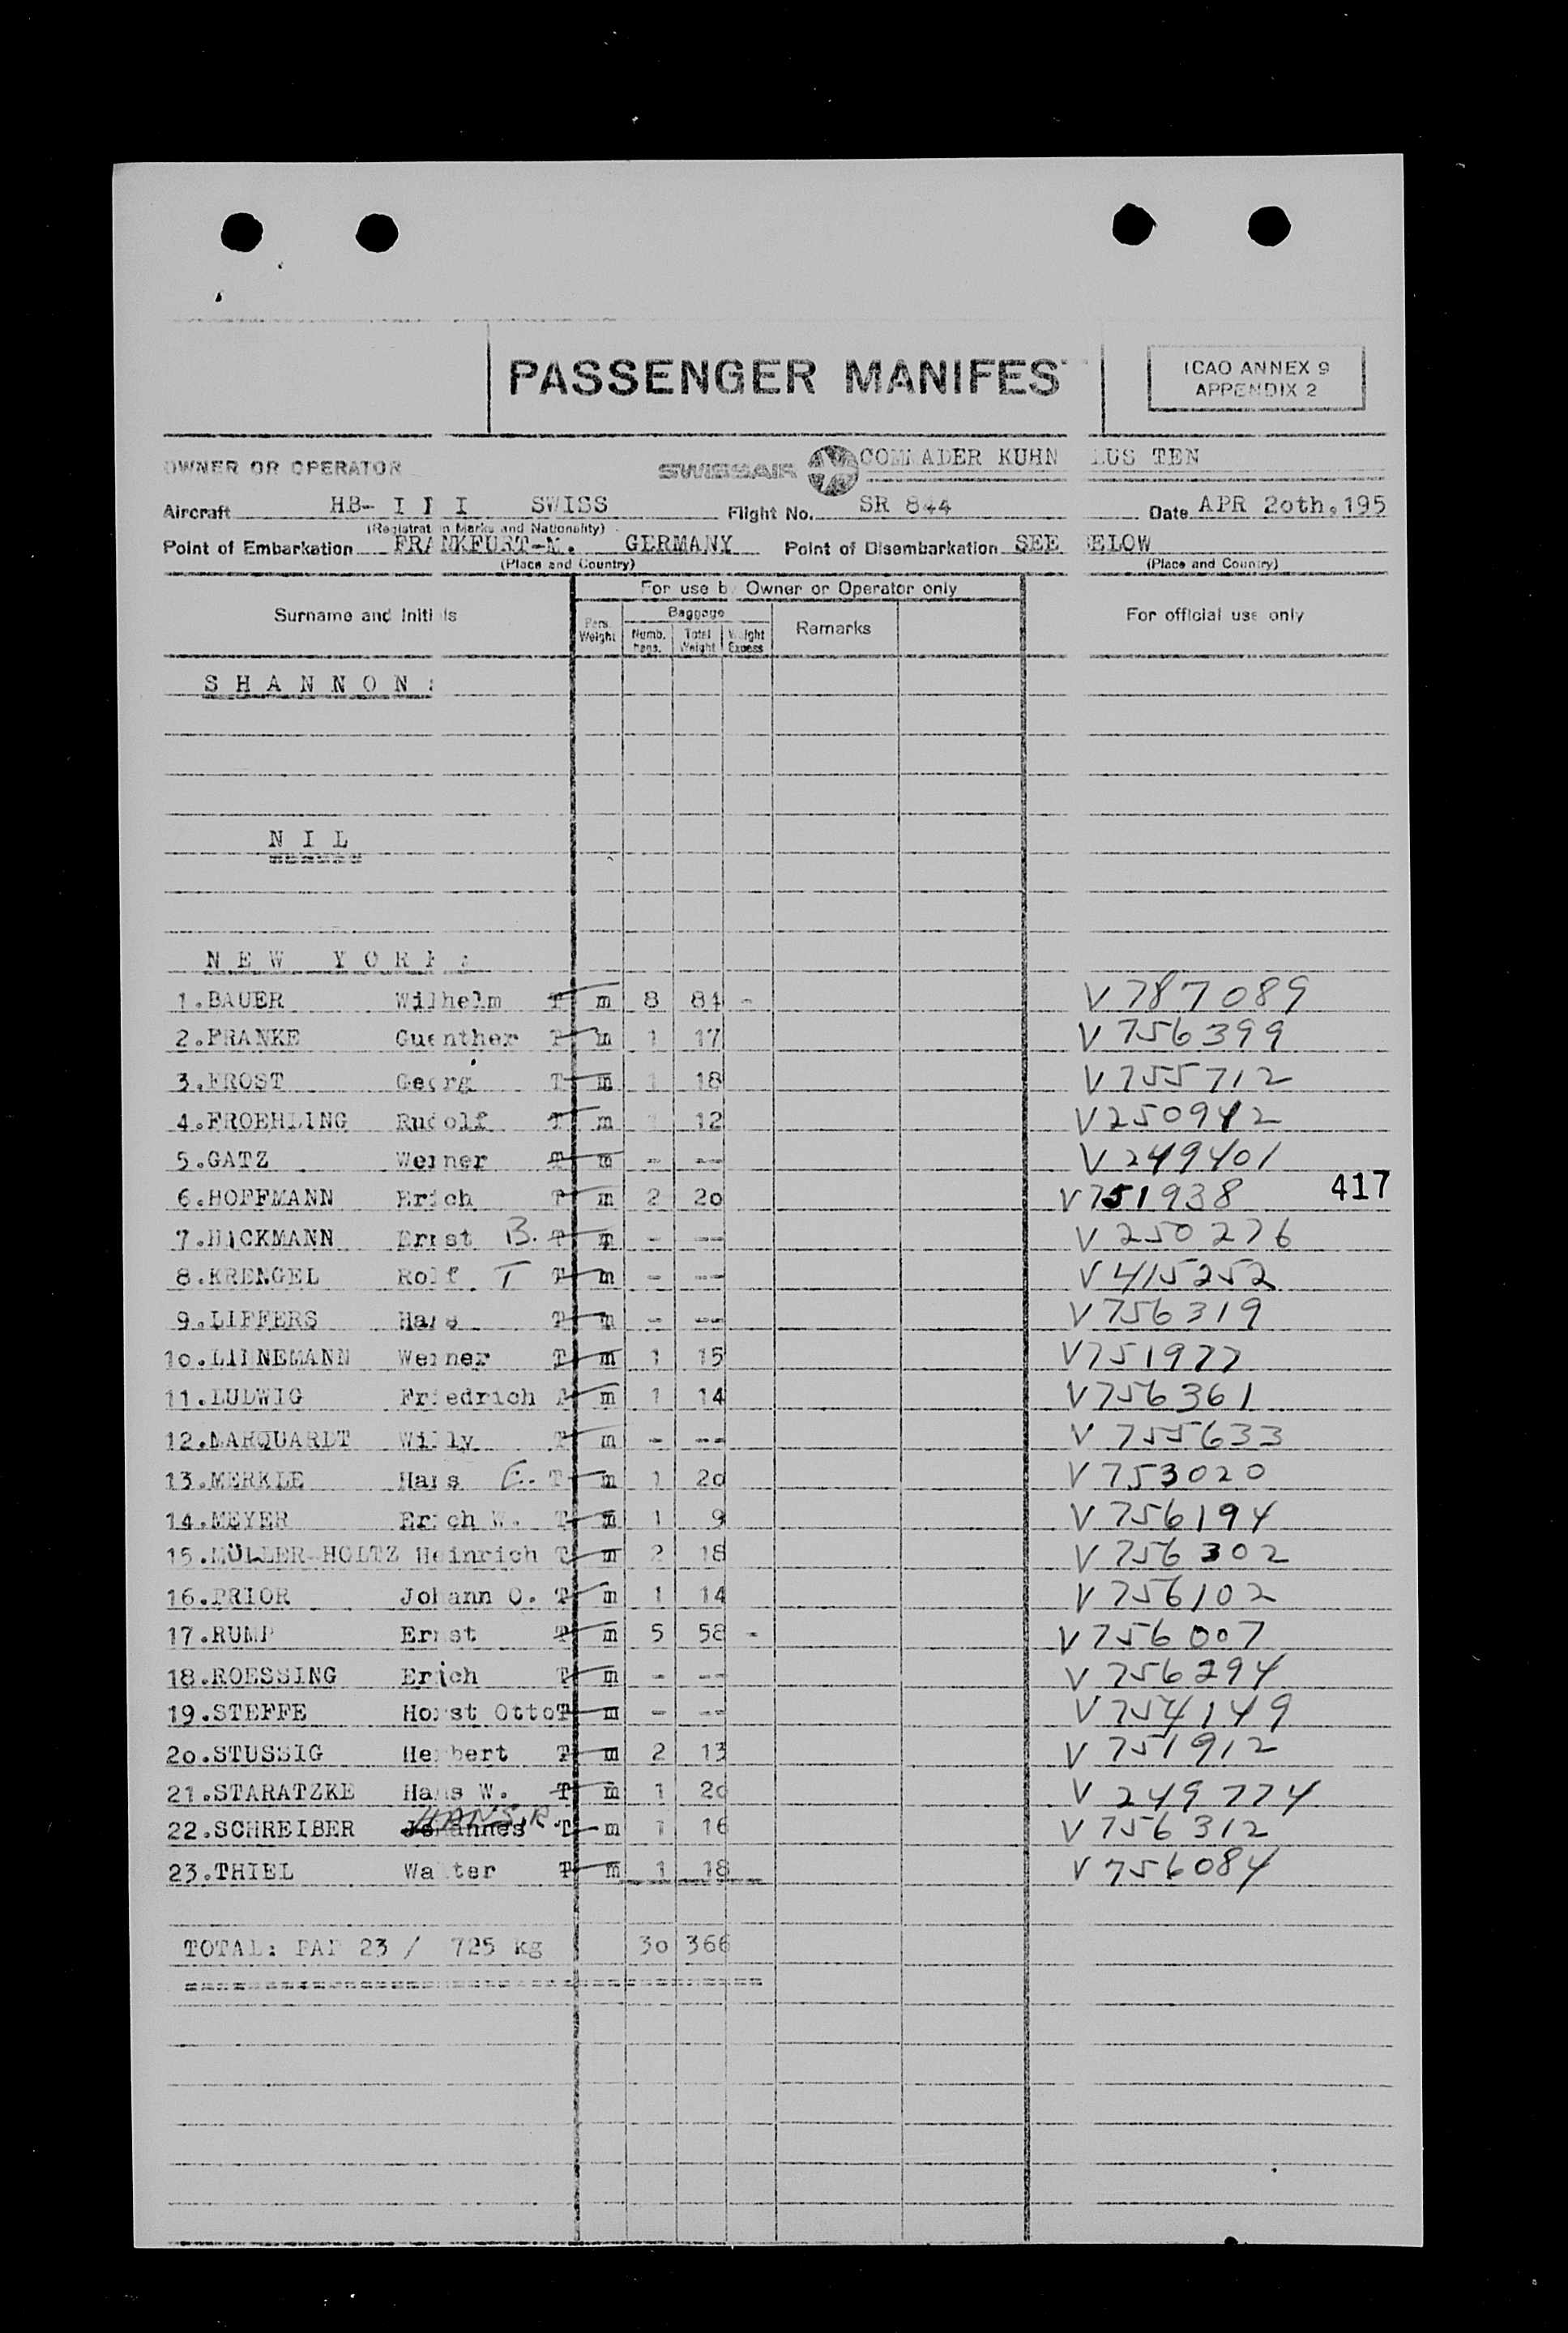 PASSENGER MANIFES
ICAO ANNEX 9
APPENDIX 2
OWNER OR OPERATOR SWISSAIR COMMADER KUHN LUS TEN
Aircraft HB- I I I SWISS Flight No. SR 844 Date APR 20th. 195
(Registration Marks and Nationality)
Point of Embarkation FRANKFURT-M. GERMANY Point of Disembarkation SEE ELOW
(Place and Country) (Place and Country)
For use by Owner or Operator only
Surname and Initials Pers. Weight Baggage Numb. Total Weight Weight Excess Remarks For official use only
S H A N N O N :
N I L
N E W Y O R K :
1.BAUER Wilhelm T m 8 84 - V 787089
2.FRANKE Guenther T m 1 17 V 756399
3.FROST Georg T m 1 18 V 755712
4.FROEHLING Rudolf T m 1 12 V 250942
5.GATZ Werner T m - -- V 249401
6.HOFFMANN Erich T m 2 20 V 751938 417
7.HACKMANN Ernst B. T m - -- V 250276
8.KRENGEL Rolf T T m - -- V 415252
9.LIFFERS Hans T m - -- V 756319
10.LINNEMANN Werner T m 1 15 V 751977
11.LUDWIG Friedrich T m 1 14 V 756361
12.MARQUARDT Willy T m - -- V 755633
13.MERKLE Hans E. T m 1 20 V 753020
14.MEYER Erich W. T m 1 9 V 756194
15.MÜLLER-HOLTZ Heinrich T m 2 18 V 756302
16.PRIOR Johann O. T m 1 14 V 756102
17.RUMP Ernst T m 5 58 - V 756007
18.ROESSING Erich T m - -- V 756294
19.STEFFE Horst Otto T m - -- V 754149
20.STUSSIG Herbert T m 2 13 V 751912
21.STARATZKE Hans W. T m 1 20 V 249774
HANS R.
22.SCHREIBER Johannes T m 1 16 V 756312
23.THIEL Walter T m 1 18 V 756084
TOTAL: PAP 23 / 725 kg 30 366